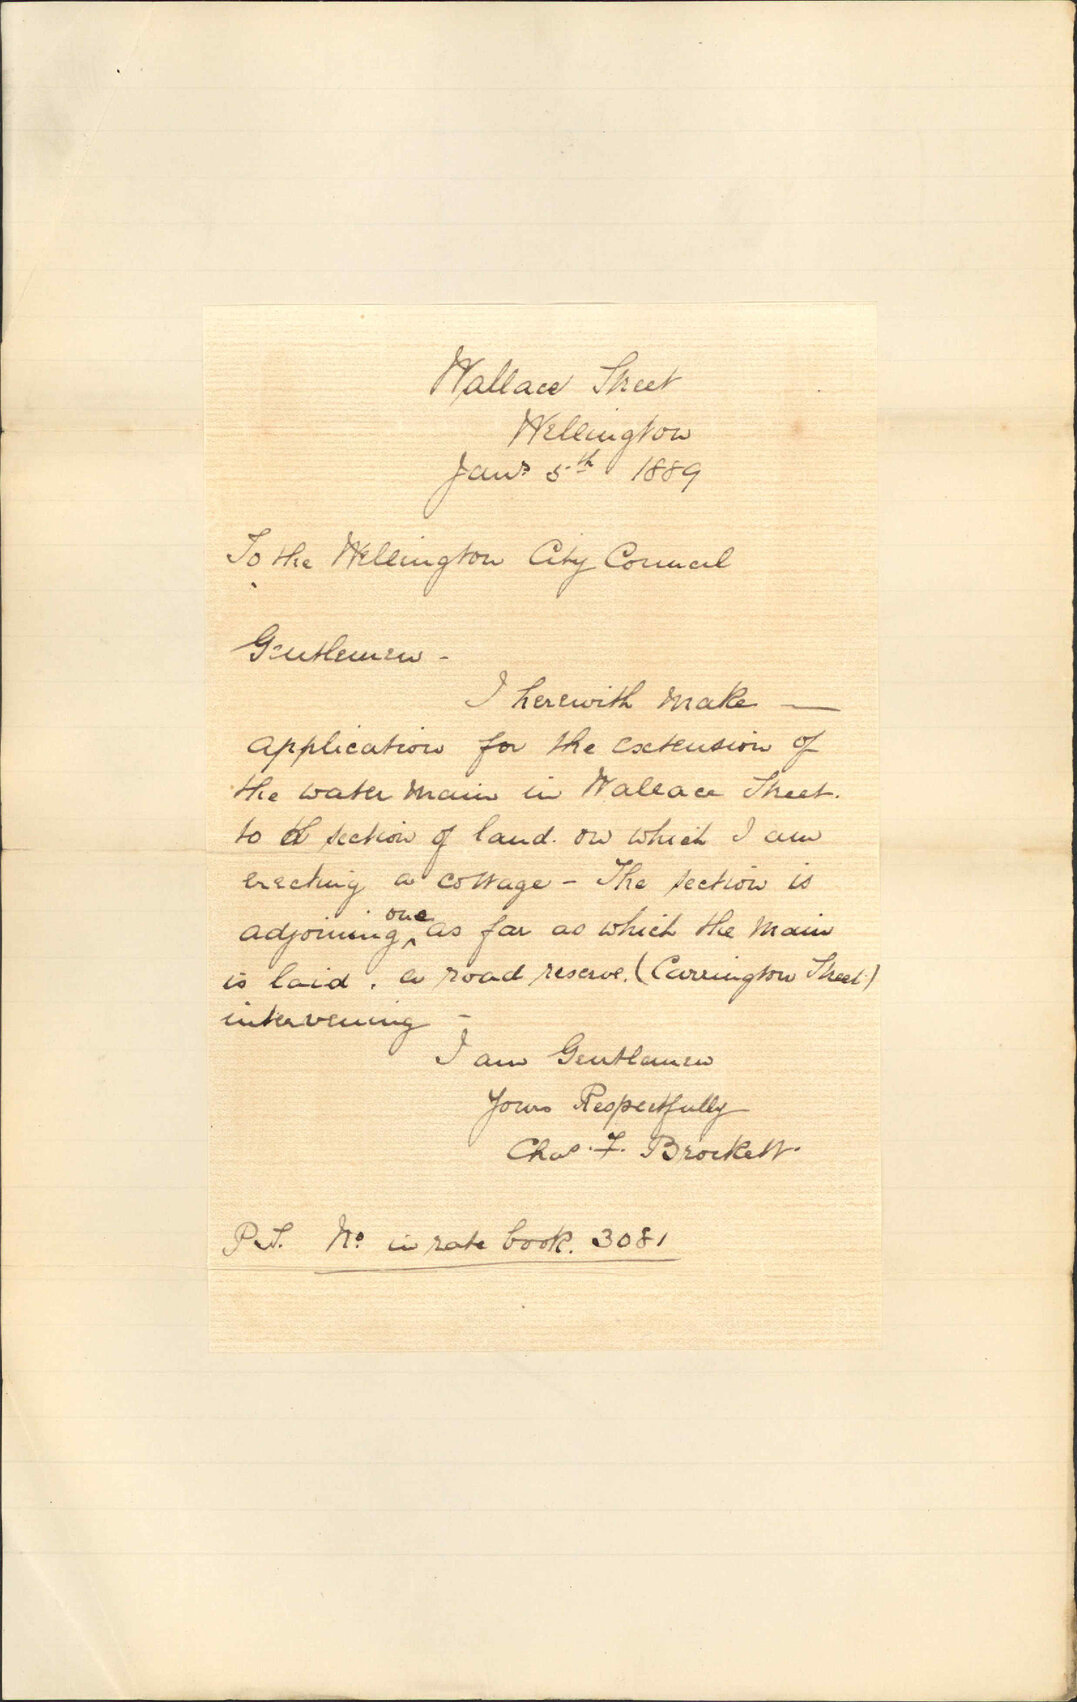 Wallace Street
Wellington
Jany 5th 1889
To the Wellington City Council
Gentlemen -
I herewith make —
application for the extension of
the water main in Wallace Street.
to section of land. on which I am
erecting a cottage - The section is
adjoining one as far as which the main
is laid. a road reserve. (Carrington Street)
intervening -
I am Gentlemen
Yours Respectfully
Chas. F. Brockett.
P.S. No. in rate book. 3081